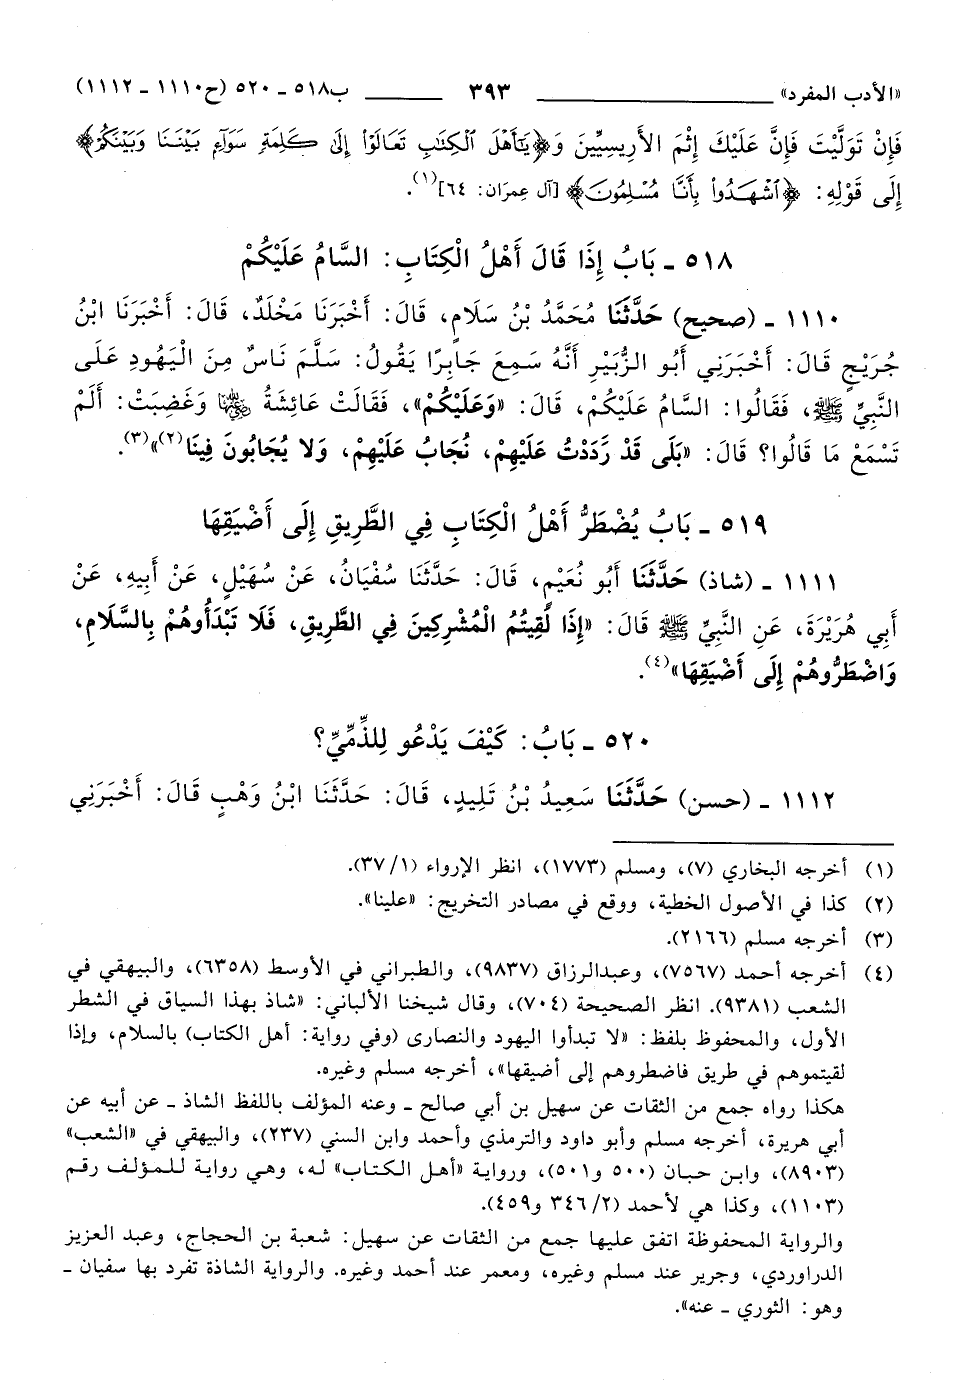 «الأدب المفرد» ٣٩٣ ب٥١٨ ـ ٥٢٠ (ح١١١٠ ـ ١١١٢)
فَإِنْ تَوَلَّيْتَ فَإِنَّ عَلَيْكَ إِثْمَ الأَرِيسِيِّينَ وَ﴿يَٰٓأَهْلَ ٱلْكِتَٰبِ تَعَالَوْا۟ إِلَىٰ كَلِمَةٍ سَوَآءٍ بَيْنَنَا وَبَيْنَكُمْ﴾
إِلَى قَوْلِهِ: ﴿ٱشْهَدُوا۟ بِأَنَّا مُسْلِمُونَ﴾ [آل عِمرَان: ٦٤](١).
٥١٨ ـ بَابُ إِذَا قَالَ أَهْلُ الْكِتَابِ: السَّامُ عَلَيْكُمْ
١١١٠ ـ (صحيح) حَدَّثَنَا مُحَمَّدُ بْنُ سَلَامٍ، قَالَ: أَخْبَرَنَا مَخْلَدٌ، قَالَ: أَخْبَرَنَا ابْنُ
جُرَيْجٍ قَالَ: أَخْبَرَنِي أَبُو الزُّبَيْرِ أَنَّهُ سَمِعَ جَابِرًا يَقُولُ: سَلَّمَ نَاسٌ مِنَ الْيَهُودِ عَلَى
النَّبِيِّ ﷺ، فَقَالُوا: السَّامُ عَلَيْكُمْ، قَالَ: «وَعَلَيْكُمْ»، فَقَالَتْ عَائِشَةُ رضي الله عنها وَغَضِبَتْ: أَلَمْ
تَسْمَعْ مَا قَالُوا؟ قَالَ: «بَلَى قَدْ رَدَدْتُ عَلَيْهِمْ، نُجَابُ عَلَيْهِمْ، وَلا يُجَابُونَ فِينَا(٢)»(٣).
٥١٩ ـ بَابُ يُضْطَرُّ أَهْلُ الْكِتَابِ فِي الطَّرِيقِ إِلَى أَضْيَقِهَا
١١١١ ـ (شاذ) حَدَّثَنَا أَبُو نُعَيْمٍ، قَالَ: حَدَّثَنَا سُفْيَانُ، عَنْ سُهَيْلٍ، عَنْ أَبِيهِ، عَنْ
أَبِي هُرَيْرَةَ، عَنِ النَّبِيِّ ﷺ قَالَ: «إِذَا لَقِيتُمُ الْمُشْرِكِينَ فِي الطَّرِيقِ، فَلَا تَبْدَأُوهُمْ بِالسَّلَامِ،
وَاضْطَرُّوهُمْ إِلَى أَضْيَقِهَا»(٤).
٥٢٠ ـ بَابُ: كَيْفَ يَدْعُو لِلذِّمِّيِّ؟
١١١٢ ـ (حسن) حَدَّثَنَا سَعِيدُ بْنُ تَلِيدٍ، قَالَ: حَدَّثَنَا ابْنُ وَهْبٍ قَالَ: أَخْبَرَنِي
(١) أخرجه البخاري (٧)، ومسلم (١٧٧٣)، انظر الإرواء (٣٧/١).
(٢) كذا في الأصول الخطية، ووقع في مصادر التخريج: «علينا».
(٣) أخرجه مسلم (٢١٦٦).
(٤) أخرجه أحمد (٧٥٦٧)، وعبدالرزاق (٩٨٣٧)، والطبراني في الأوسط (٦٣٥٨)، والبيهقي في
الشعب (٩٣٨١). انظر الصحيحة (٧٠٤)، وقال شيخنا الألباني: «شاذ بهذا السياق في الشطر
الأول، والمحفوظ بلفظ: «لا تبدأوا اليهود والنصارى (وفي رواية: أهل الكتاب) بالسلام، وإذا
لقيتموهم في طريق فاضطروهم إلى أضيقها»، أخرجه مسلم وغيره.
هكذا رواه جمع من الثقات عن سهيل بن أبي صالح ـ وعنه المؤلف باللفظ الشاذ ـ عن أبيه عن
أبي هريرة، أخرجه مسلم وأبو داود والترمذي وأحمد وابن السني (٢٣٧)، والبيهقي في «الشعب»
(٨٩٠٣)، وابن حبان (٥٠٠ و٥٠١)، ورواية «أهل الكتاب» له، وهي رواية للمؤلف رقم
(١١٠٣)، وكذا هي لأحمد (٣٤٦/٢ و٤٥٩).
والرواية المحفوظة اتفق عليها جمع من الثقات عن سهيل: شعبة بن الحجاج، وعبد العزيز
الدراوردي، وجرير عند مسلم وغيره، ومعمر عند أحمد وغيره. والرواية الشاذة تفرد بها سفيان ـ
وهو: الثوري ـ عنه».